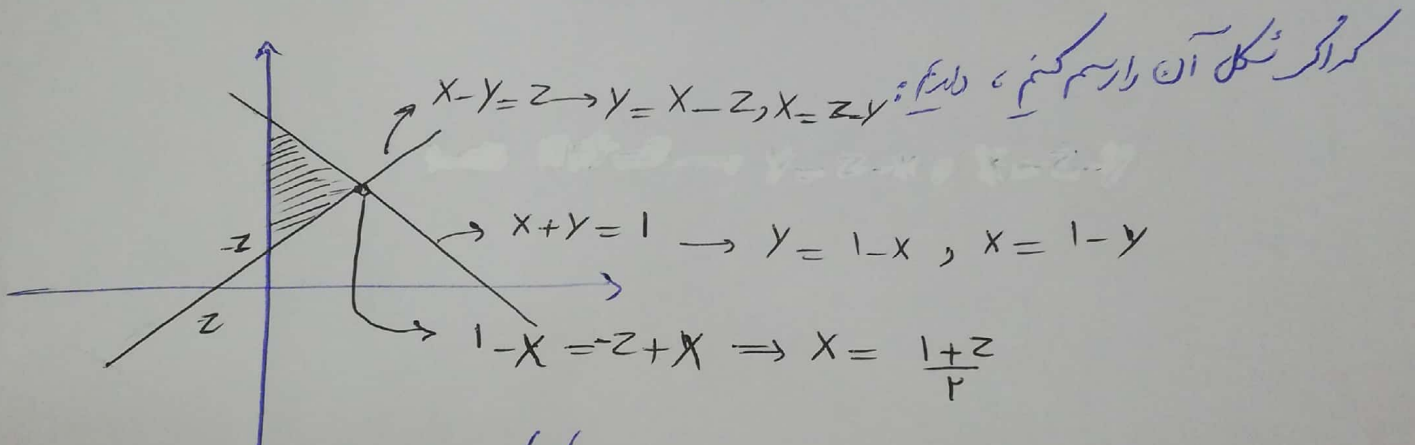 که اگر شکل آن را رسم کنیم، داریم:
x-y=z → y=x-z, x=z-y
-z
x+y=1 → y=1-x, x=1-y
z
1-x=-z+x ⇒ x=(1+z)/۲